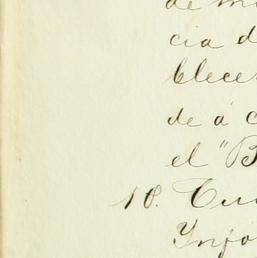 de m
cia d
blece
de á c
el "B
18. Cu
Info